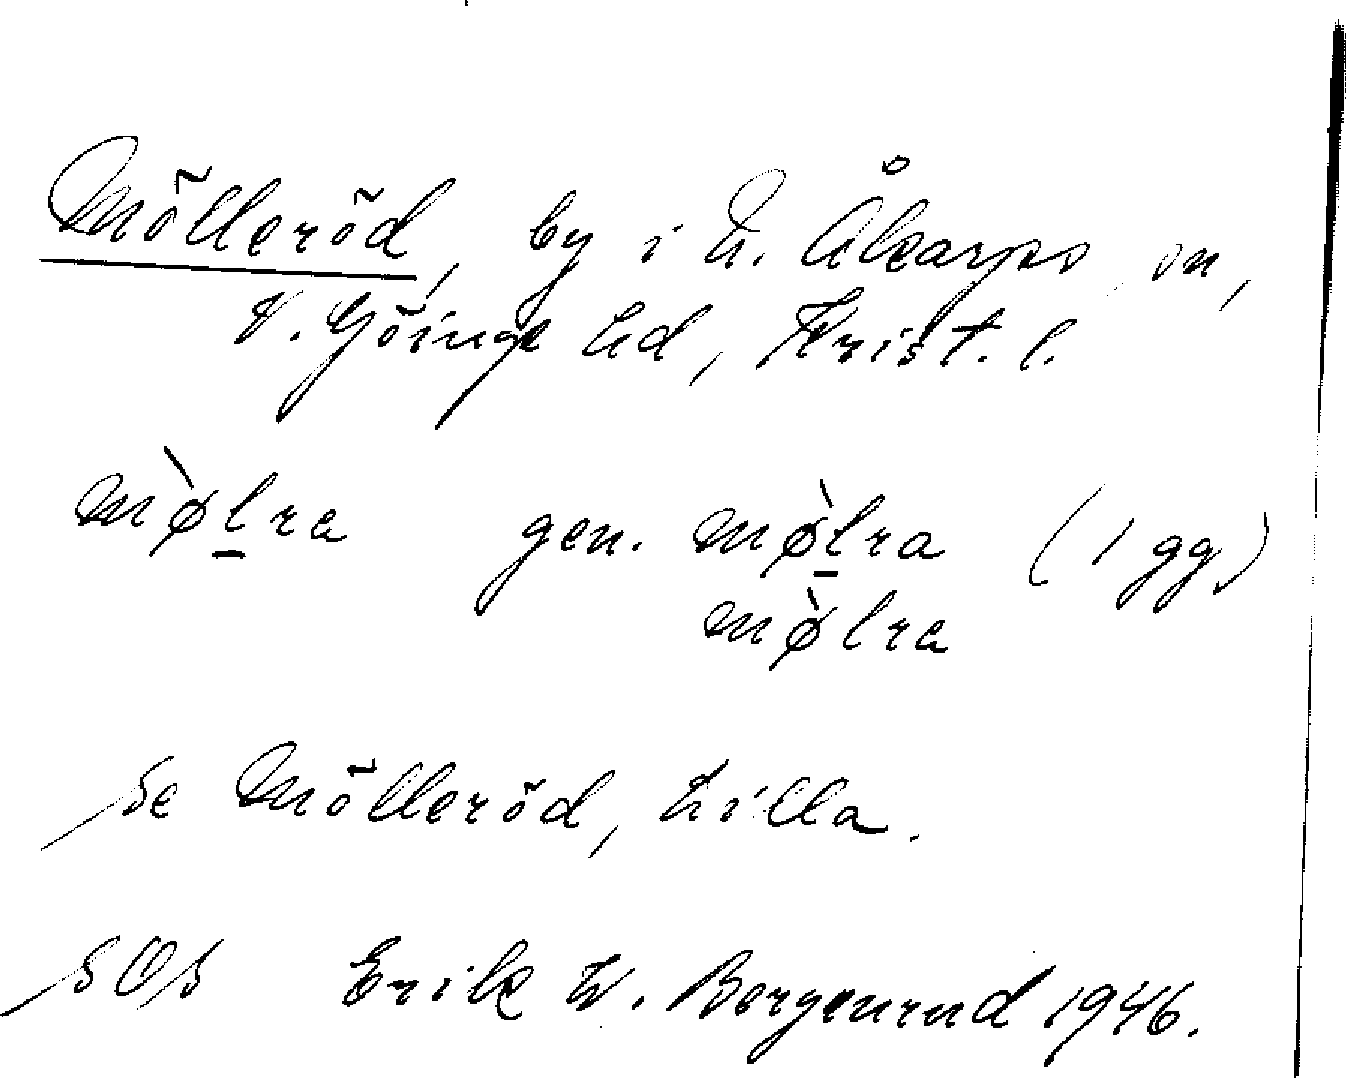 Mölleröd, by i N. Åkarps sn,
V. Göinge hd, Krist. l.
mø̀l̲ra gen. mø̀l̲ra (1 gg)
mø̀lra
Se Mölleröd, Lilla.
SOS Erik W. Bergenrud 1946.